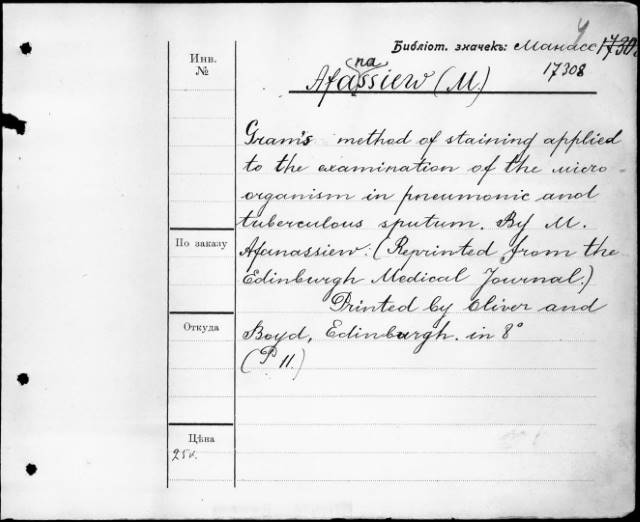 Инв.
№
Библіот. значекъ: Манасс 17308
у
17308
Afanassiew (M.)
Gram's method of staining applied
to the examination of the micro-
organism in pneumonic and
tuberculous sputum. By M.
Afanassiew. (Reprinted from the
Edinburgh Medical Journal.)
Printed by Oliver and
Boyd, Edinburgh. in 8°
(P. 11.)
По заказу
Откуда
Цѣна
25к.